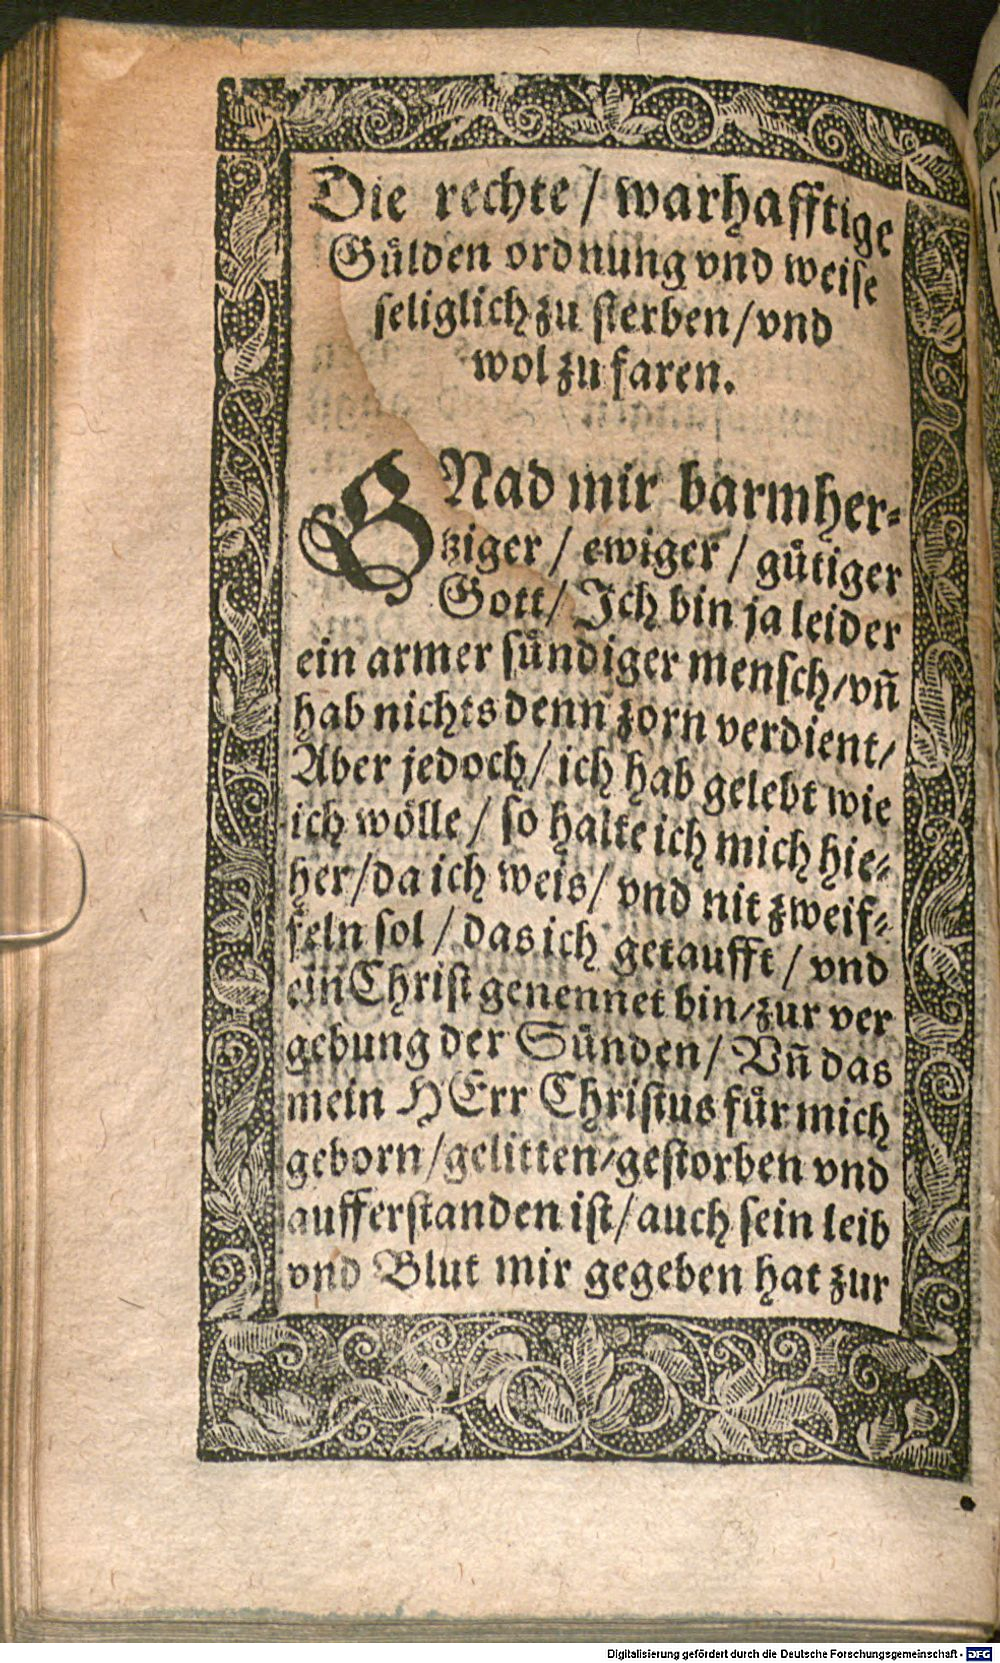 Die rechte / warhafftige
Guͤlden ordnung vnd weise
seliglich zu sterben / vnd
wol zu faren.
GNad mir barmher⸗
tziger / ewiger / guͤtiger
Gott / Jch bin ja leider
ein armer suͤndiger mensch / vñ
hab nichts denn zorn verdient /
Aber jedoch / ich hab gelebt wie
ich woͤlle / so halte ich mich hie⸗
her / da ich weis / vnd nit zweif⸗
feln sol / das ich getaufft / vnd
ein Christ genennet bin / zur ver
gebung der Suͤnden / Vñ das
mein HErr Christus fuͤr mich
geborn / gelitten / gestorben vnd
aufferstanden ist / auch sein leib
vnd Blut mir gegeben hat zur
Digitalisierung gefördert durch die Deutsche Forschungsgemeinschaft - DFG